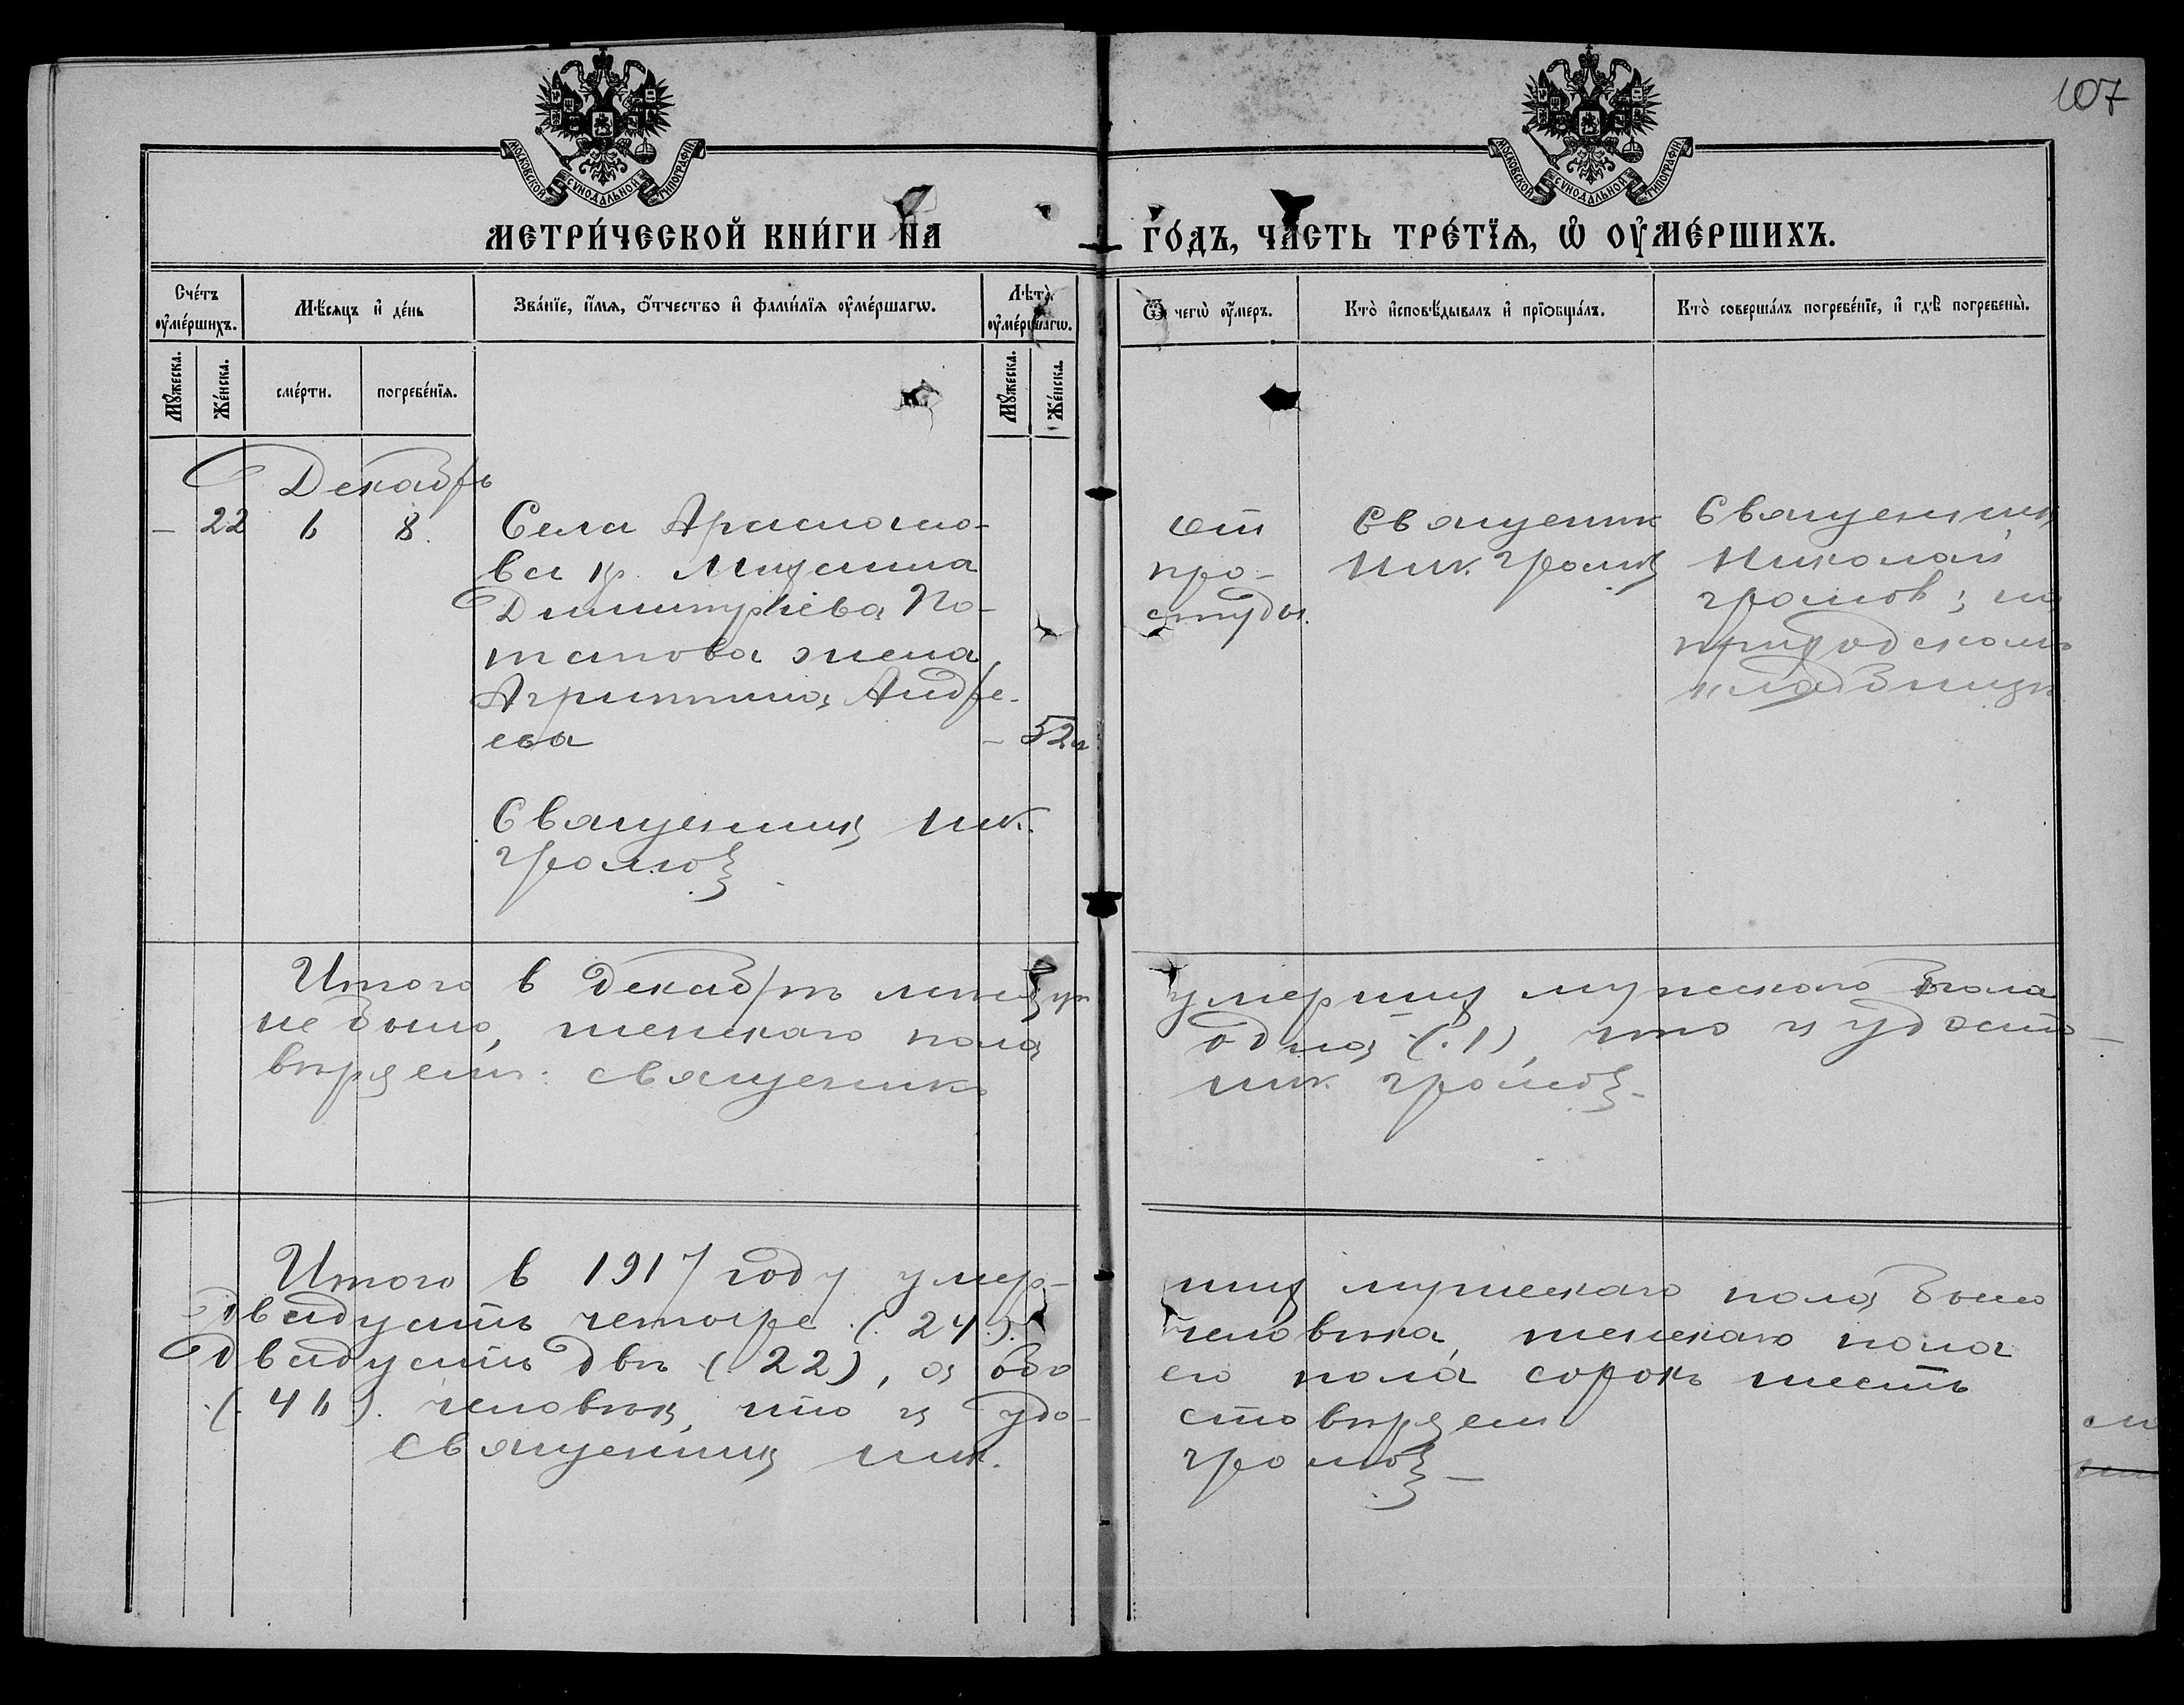 107
МОСКОВСКОЙ СУНОДАЛЬНОЙ ТИПОГРАФІИ
МОСКОВСКОЙ СУНОДАЛЬНОЙ ТИПОГРАФІИ
МЕТРИ́ЧЕСКОЙ КНИ́ГИ НА ГО́ДЪ, ЧА́СТЬ ТРЕ́ТІѦ, Ѡ҆ ОУ҆МЕ́РШИХЪ.
Сче́тъ оу҆ме́ршихъ.
Мѣ́сяцъ и҆ де́нь
Зва́нїе, и҆́мѧ, ѻ҆́тчество и҆ фами́лїѧ оу҆ме́ршагѡ.
Лѣ́та оу҆ме́ршагѡ.
Ѿ чегѡ̀ оу҆́меръ.
Кто̀ и҆сповѣ́дывалъ и҆ прїѡбща́лъ.
Кто̀ соверша́лъ погребе́нїе, и҆ гдѣ̀ погребены̀.
Мꙋ́жеска.
Же́нска.
сме́рти.
погребе́нїѧ.
Мꙋ́жеска.
Же́нска.
Декабрь
– 22 6 8.
Села
ва кр.
Димитріева По-
тапова жена
Агриппина Андре-
ева – 52 л
Священникъ Ник.
Громовъ
от
про-
студы.
Священник
Ник. Громовъ
Священникъ
Николай
Громов; на
приходском
кладбищѣ
Итого в Декабрѣ умершихъ мужеского пола
не было, женскаго пола одна (1), что и удосто-
вѣряет: священникъ Ник. Громовъ –
Итого в 1917 году умер- ших мужескаго пола было
двадцать четыре (24) человѣка, женскаго пола
двадцать двѣ (22), а обо его пола сорокъ шесть
(46) человѣкъ, что и удо- стовѣряет
Священникъ Ник. Громовъ –